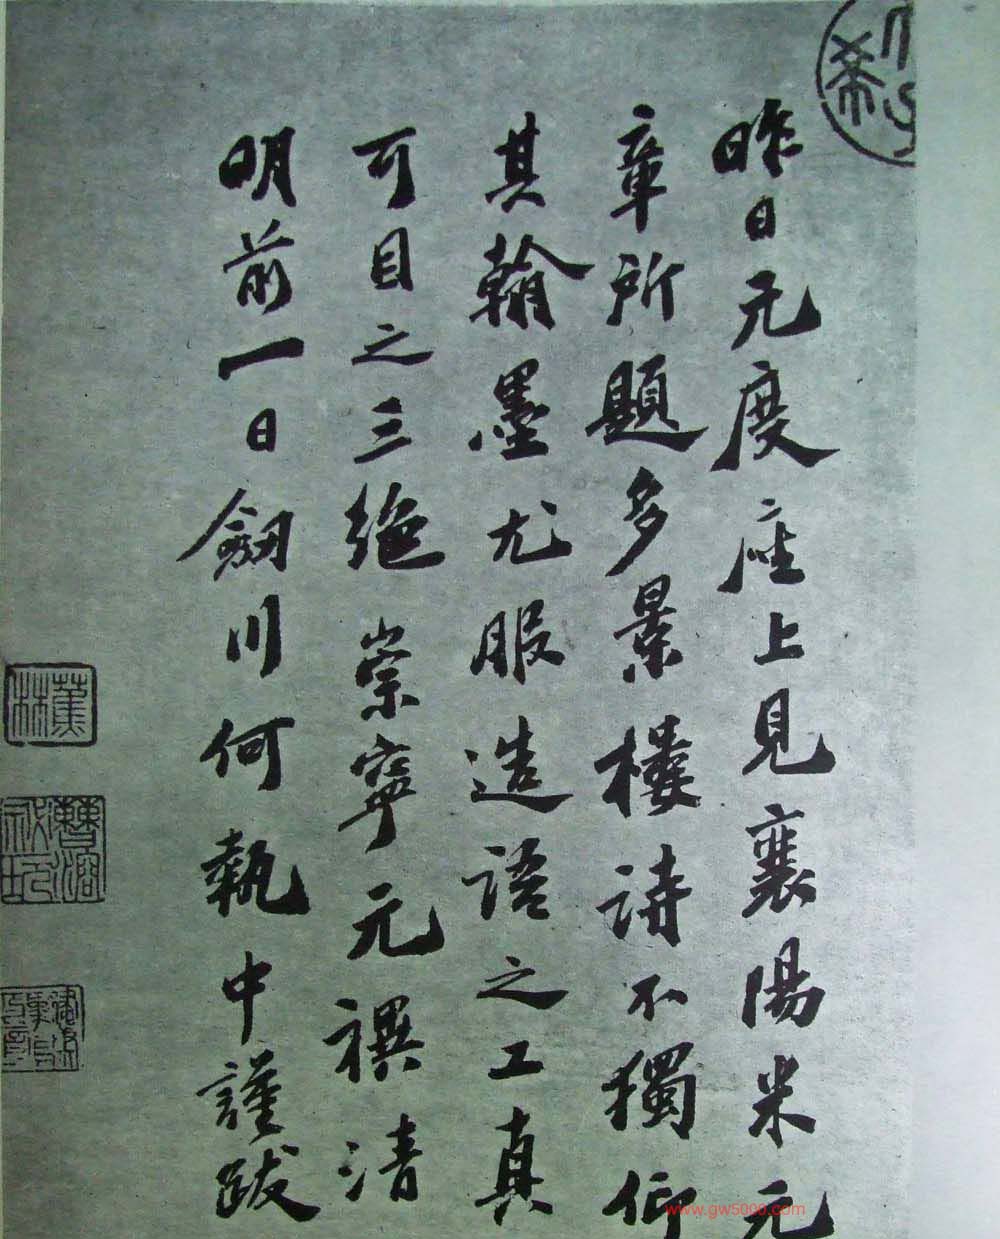 昨日元度座上見襄陽米元
章所題多景樓詩不獨仰
其翰墨尤服造語之工真
可目之三絶崇寧元禩清
明前一日劒川何執中謹跋
蕉林
www.gw5000.com